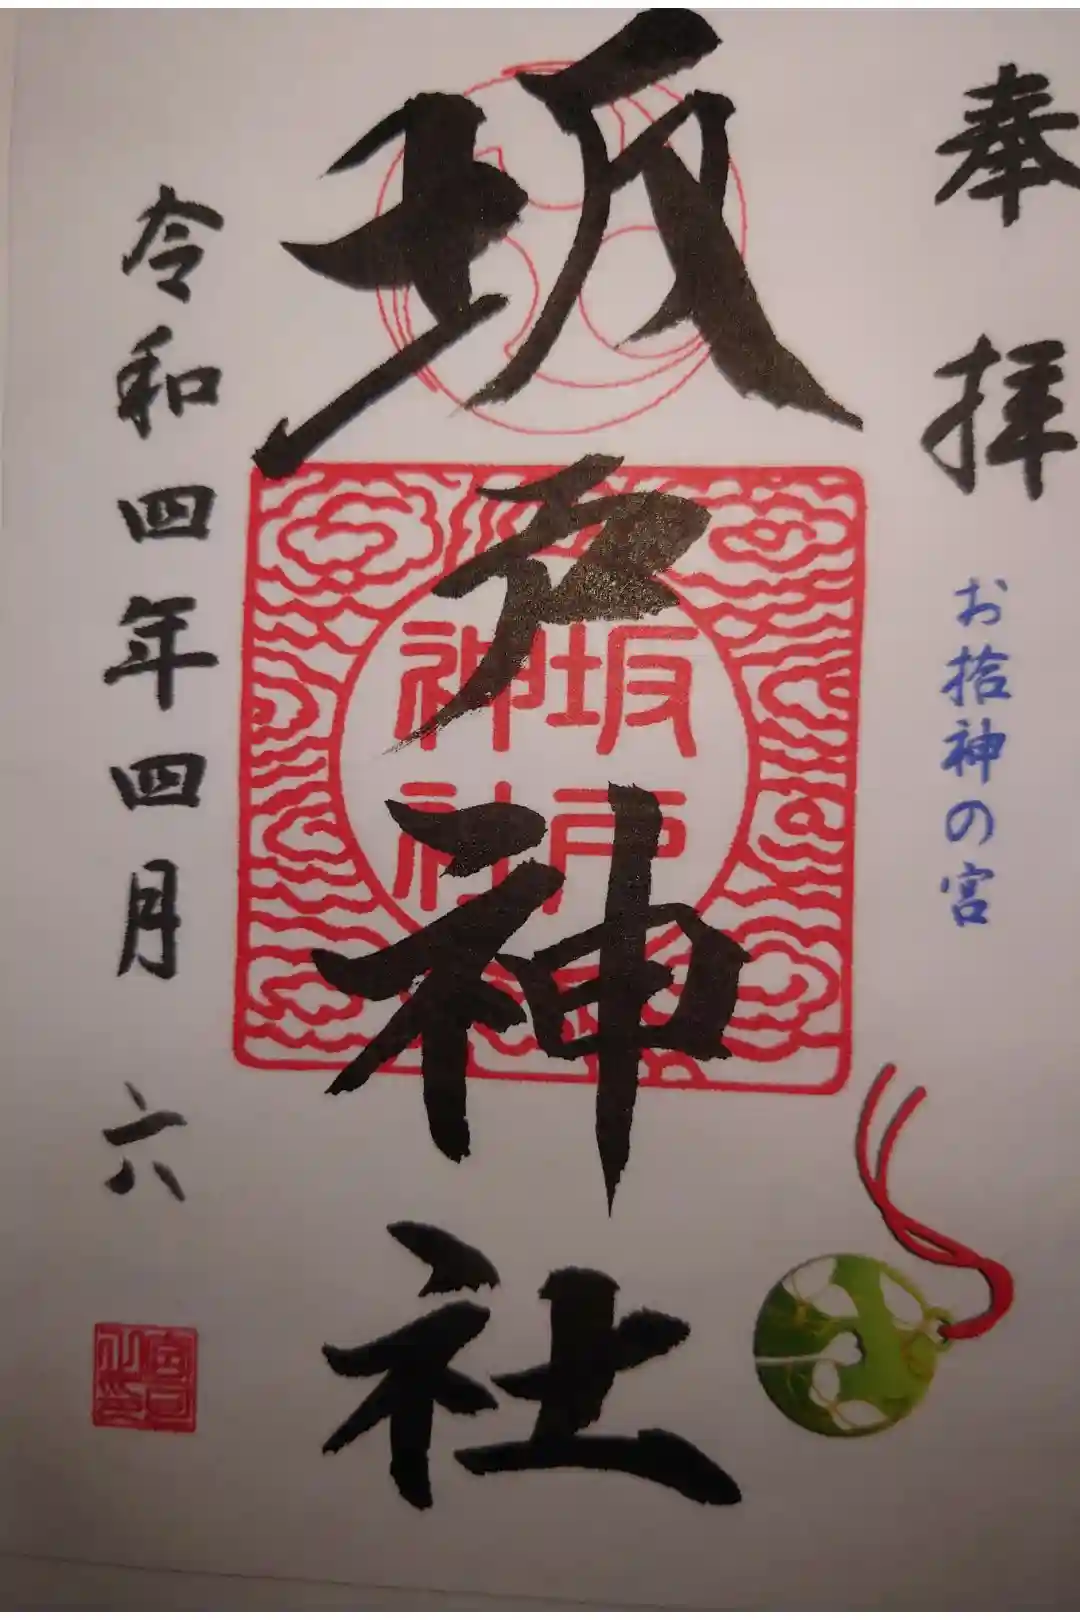 奉拝
お拾神の宮
坂戸神社
坂戸
神社
令和四年四月六